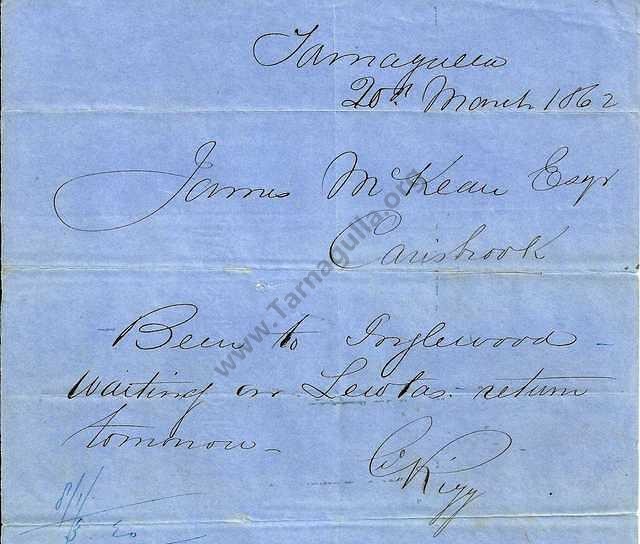 Tarnagulla
20th March 1862
James McKean Esqr
Carisbrook
Been to Inglewood -
Waiting on Lewtas - return
tomorrow -
C Rigg
www.Tarnagulla.org